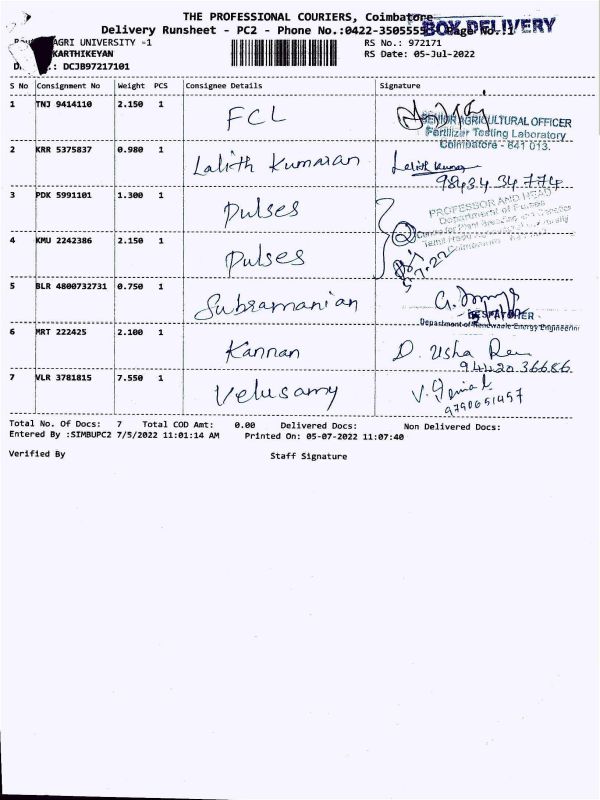 THE PROFESSIONAL COURIERS, Coimbatore
Delivery Runsheet - PC2 - Phone No.:0422-3505555 Page No.:1
BOX DELIVERY
AGRI UNIVERSITY -1 RS No.: 972171
KARTHIKEYAN RS Date: 05-Jul-2022
.: DCJB97217101
S No Consignment No Weight PCS Consignee Details Signature
1 TNJ 9414110 2.150 1 FCL
SENIOR AGRICULTURAL OFFICER
Fertilizer Testing Laboratory
Coimbatore - 641 013.
2 KRR 5375837 0.980 1 Lalith Kumaran Lalith Kumar
98434 34 774
3 PDK 5991101 1.300 1 Pulses
PROFESSOR AND HEAD
Department of Pulses
Centre for Plant Breeding and Genetics
Coimbatore
4 KMU 2242386 2.150 1 Pulses
5.7.22
5 BLR 4800732731 0.750 1 Subramanian
DESPATCHER
Department of Renewable Energy Engineering
6 MRT 222425 2.100 1 Kannan D. Usha Rani
94420 36686
7 VLR 3781815 7.550 1 Velusamy
9790651457
Total No. Of Docs: 7 Total COD Amt: 0.00 Delivered Docs: Non Delivered Docs:
Entered By :SIMBUPC2 7/5/2022 11:01:14 AM Printed On: 05-07-2022 11:07:40
Verified By Staff Signature